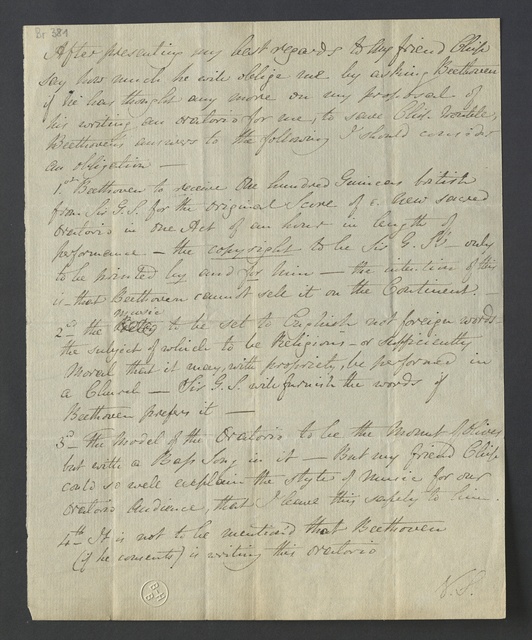 Br 381
After presenting my best regards to my friend Chip.
say how much he will oblige me by asking Beethoven
if he has thought any more on my proposal of
his writing an Oratorio for me, to save Chip. trouble,
Beethoven's answer to the following I should consider
an obligation —
1st Beethoven to receive One hundred Guineas british
from Sir G. S. for the Original Score of a New sacred
Oratorio in one Act of an hour in length of
performance — the copyright to be Sir G. S's — only
to be printed by and for him — the intention of this
is that Beethoven cannot sell it on the Continent.
2nd the music to be set to English not foreign words
the subject of which to be Religious — or sufficiently
Moral that it may, with propriety, be performed in
a Church — Sir G. S. will furnish the words if
Beethoven prefers it —
3rd the Model of the Oratorio to be the Mount Olives
but with a Bass Song in it — But my friend Chip.
could so well explain the style of music for our
Oratorio Audience, that I leave this safely to him.
4th It is not to be mentioned that Beethoven
(if he consents) is writing this Oratorio
V. S.
B-H
B